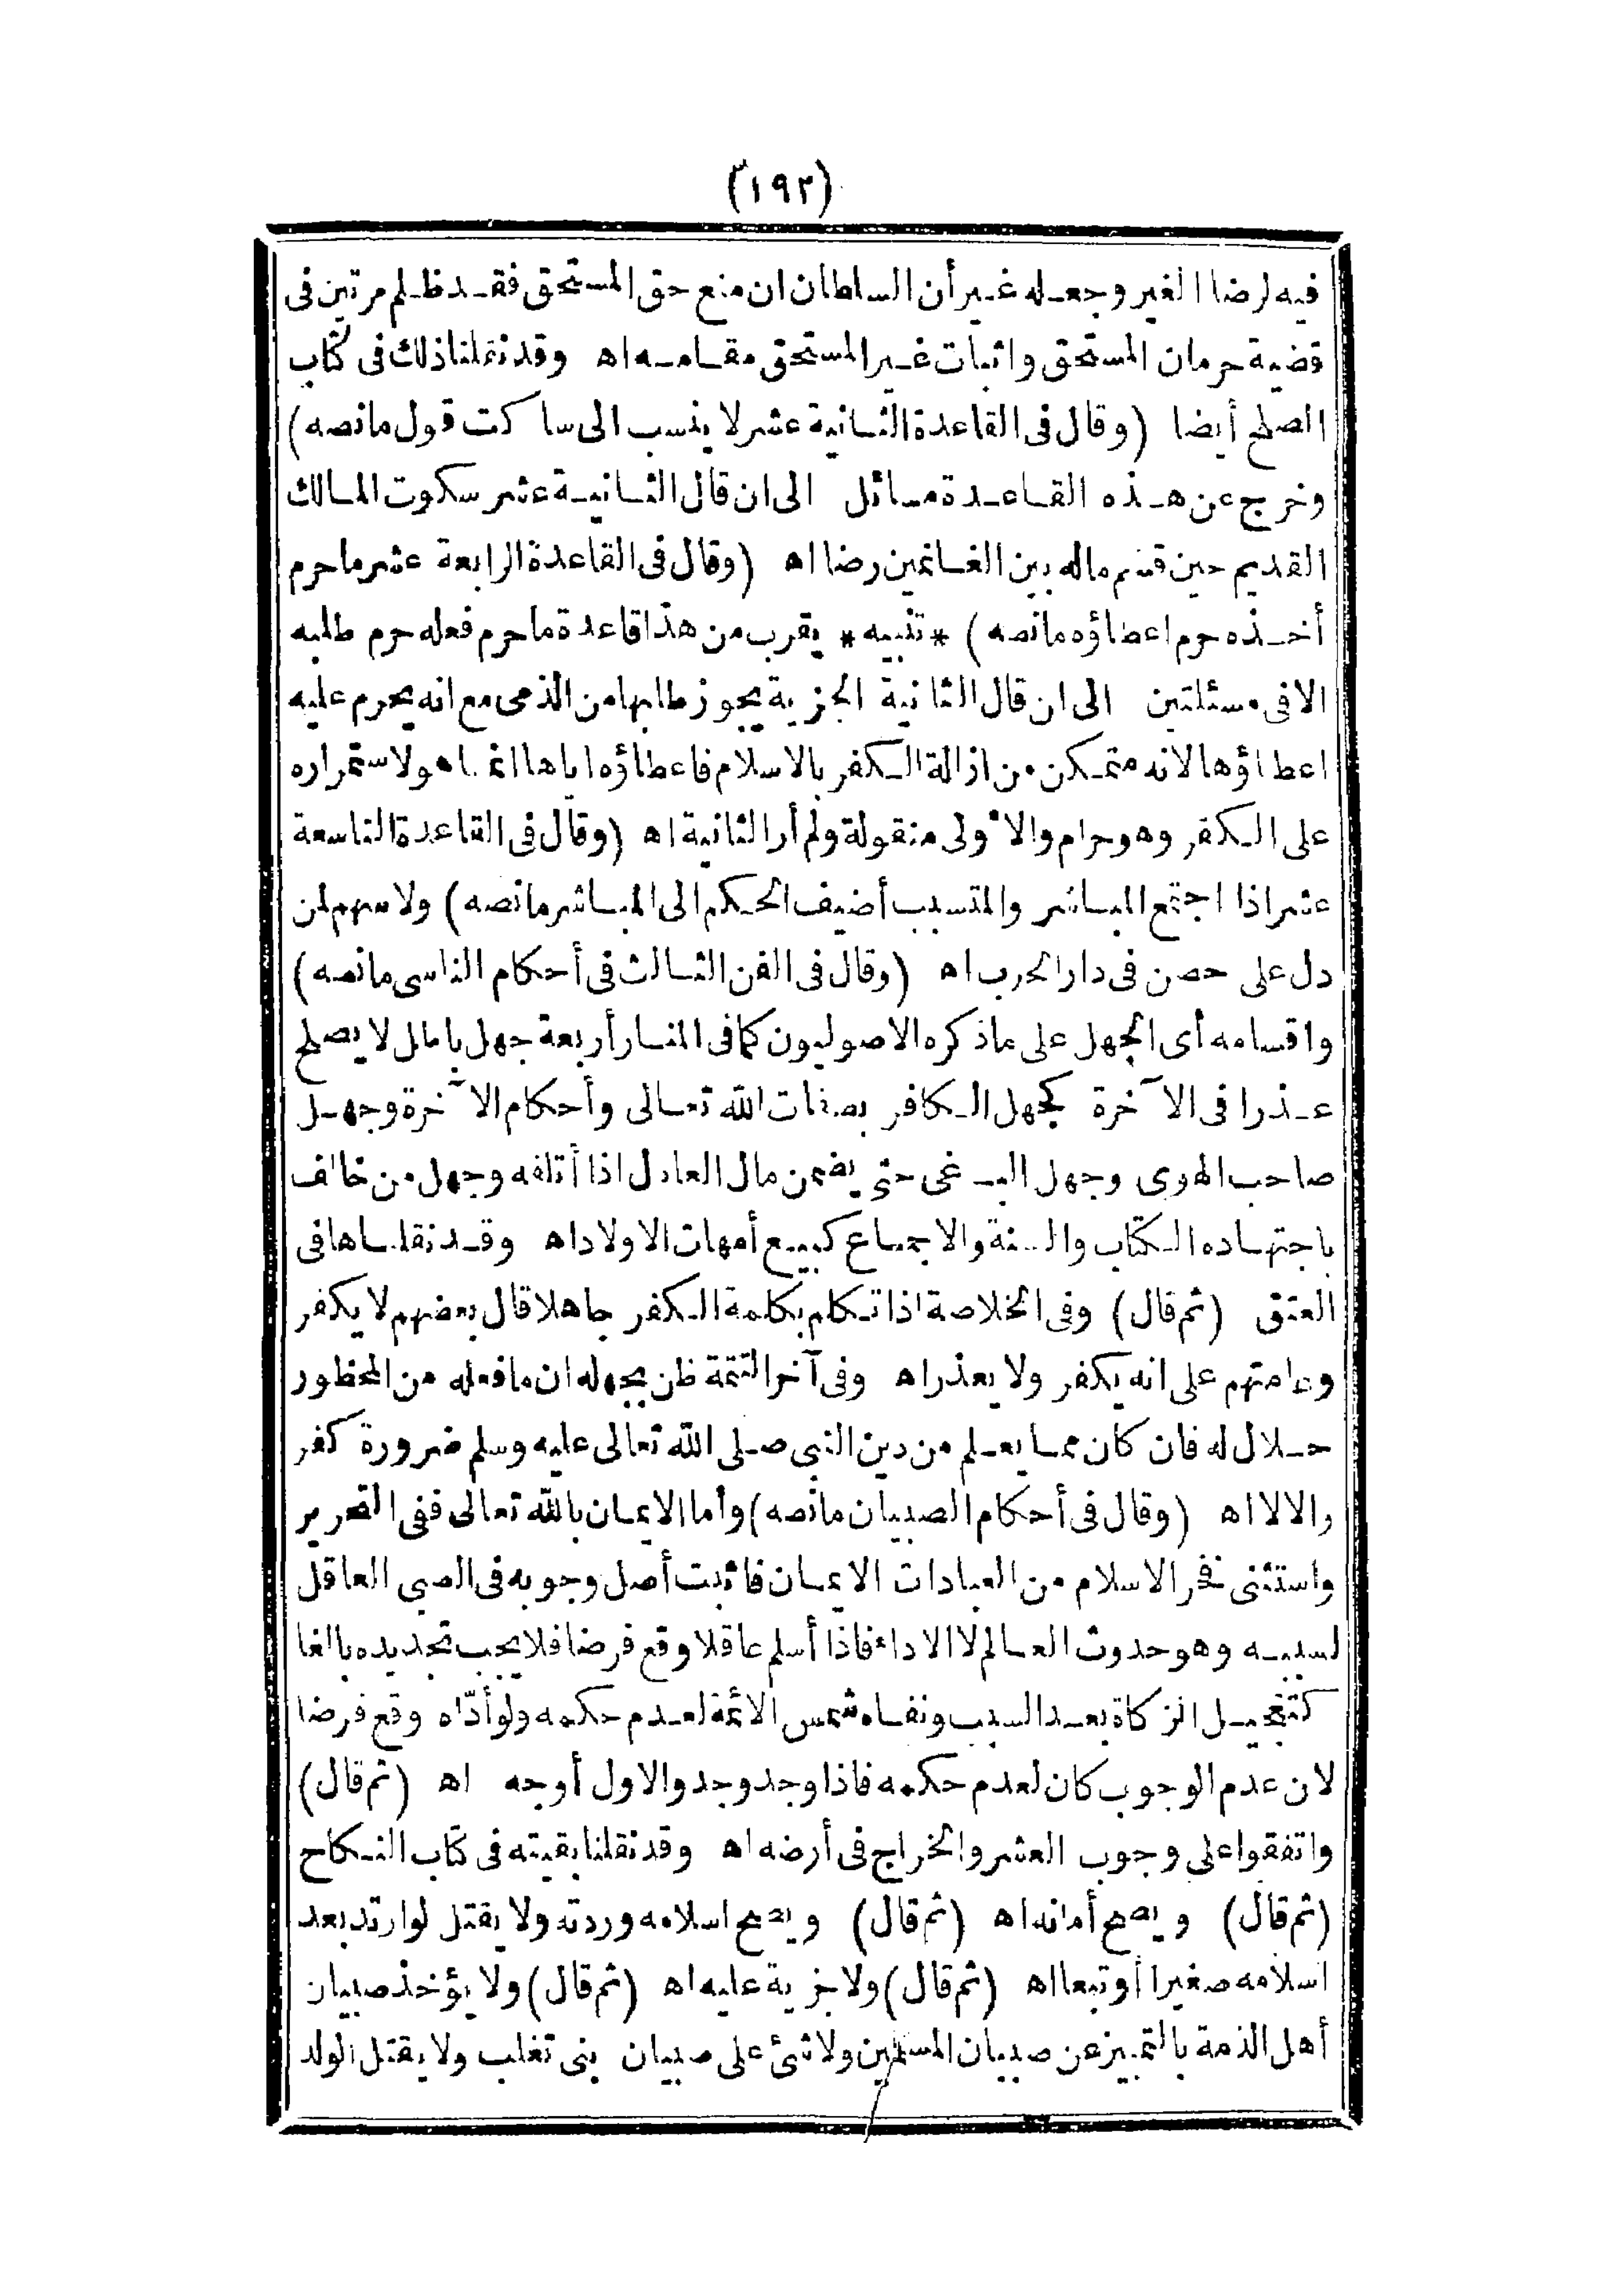 (١٩٢)
فيه لرضا الغير وجعله غير أن السلطان ان منع حق المستحق فقد ظلم مرتين فى
قضية حرمان المستحق واثبات غير المستحق مقامه اه وقد نقلنا ذلك فى كتاب
الصلح أيضا (وقال فى القاعدة الثانية عشر لا ينسب الى ساكت قول مانصه)
وخرج عن هذه القاعدة مسائل الى ان قال الثانية عشر سكوت المالك
القديم حين قسم ماله بين الغانمين رضا اه (وقال فى القاعدة الرابعة عشر ما حرم
أخذه حرم اعطاؤه مانصه) * تنبيه * يقرب من هذا قاعدة ما حرم فعله حرم طلبه
الا فى مسئلتين الى ان قال الثانية الجزية يجوز طلبها من الذمى مع انه يحرم عليه
اعطاؤها لانه متمكن من ازالة الكفر بالاسلام فاعطاؤه اياها انما هو لاستمراره
على الكفر وهو حرام والاولى منقولة ولم أر الثانية اه (وقال فى القاعدة التاسعة
عشر اذا اجتمع المباشر والمتسبب أضيف الحكم الى المباشر مانصه) ولا سهم لمن
دل على حصن فى دار الحرب اه (وقال فى الفن الثالث فى أحكام الناسى مانصه)
واقسامه أى الجهل على ماذكره الاصوليون كما فى المنار أربعة جهل باطل لا يصلح
عذرا فى الآخرة كجهل الكافر بصفات الله تعالى وأحكام الآخرة وجهل
صاحب الهوى وجهل البغى حتى يضمن مال العادل اذا أتلفه وجهل من خالف
باجتهاده الكتاب والسنة والاجماع كبيع أمهات الاولاد اه وقد نقلناها فى
العتق (ثم قال) وفى الخلاصة اذا تكلم بكلمة الكفر جاهلا قال بعضهم لا يكفر
وعامتهم على انه يكفر ولا يعذر اه وفى آخر التتمة ظن بجهله ان ما فعله من المحظور
حلال له فان كان مما يعلم من دين النبى صلى الله تعالى عليه وسلم ضرورة كفر
والا لا اه (وقال فى أحكام الصبيان مانصه) وأما الايمان بالله تعالى ففى التحرير
واستثنى فخر الاسلام من العبادات الايمان فاثبت أصل وجوبه فى الصبى العاقل
لسببه وهو حدوث العالم لا الاداء فاذا أسلم عاقلا وقع فرضا فلا يجب تجديده بالغا
كتعجيل الزكاة بعد السبب ونفاه شمس الائمة لعدم حكمه ولو أدّاه وقع فرضا
لان عدم الوجوب كان لعدم حكمه فاذا وجد وجد والاول أوجه اه (ثم قال)
واتفقوا على وجوب العشر والخراج فى أرضه اه وقد نقلنا بقيته فى كتاب النكاح
(ثم قال) ويصح أمانه اه (ثم قال) ويصح اسلامه وردته ولا يقتل لو ارتد بعد
اسلامه صغيرا أو تبعا اه (ثم قال) ولا جزية عليه اه (ثم قال) ولا يؤخذ صبيان
أهل الذمة بالتمييز عن صبيان المسلمين ولا شئ على صبيان بنى تغلب ولا يقتل الولد